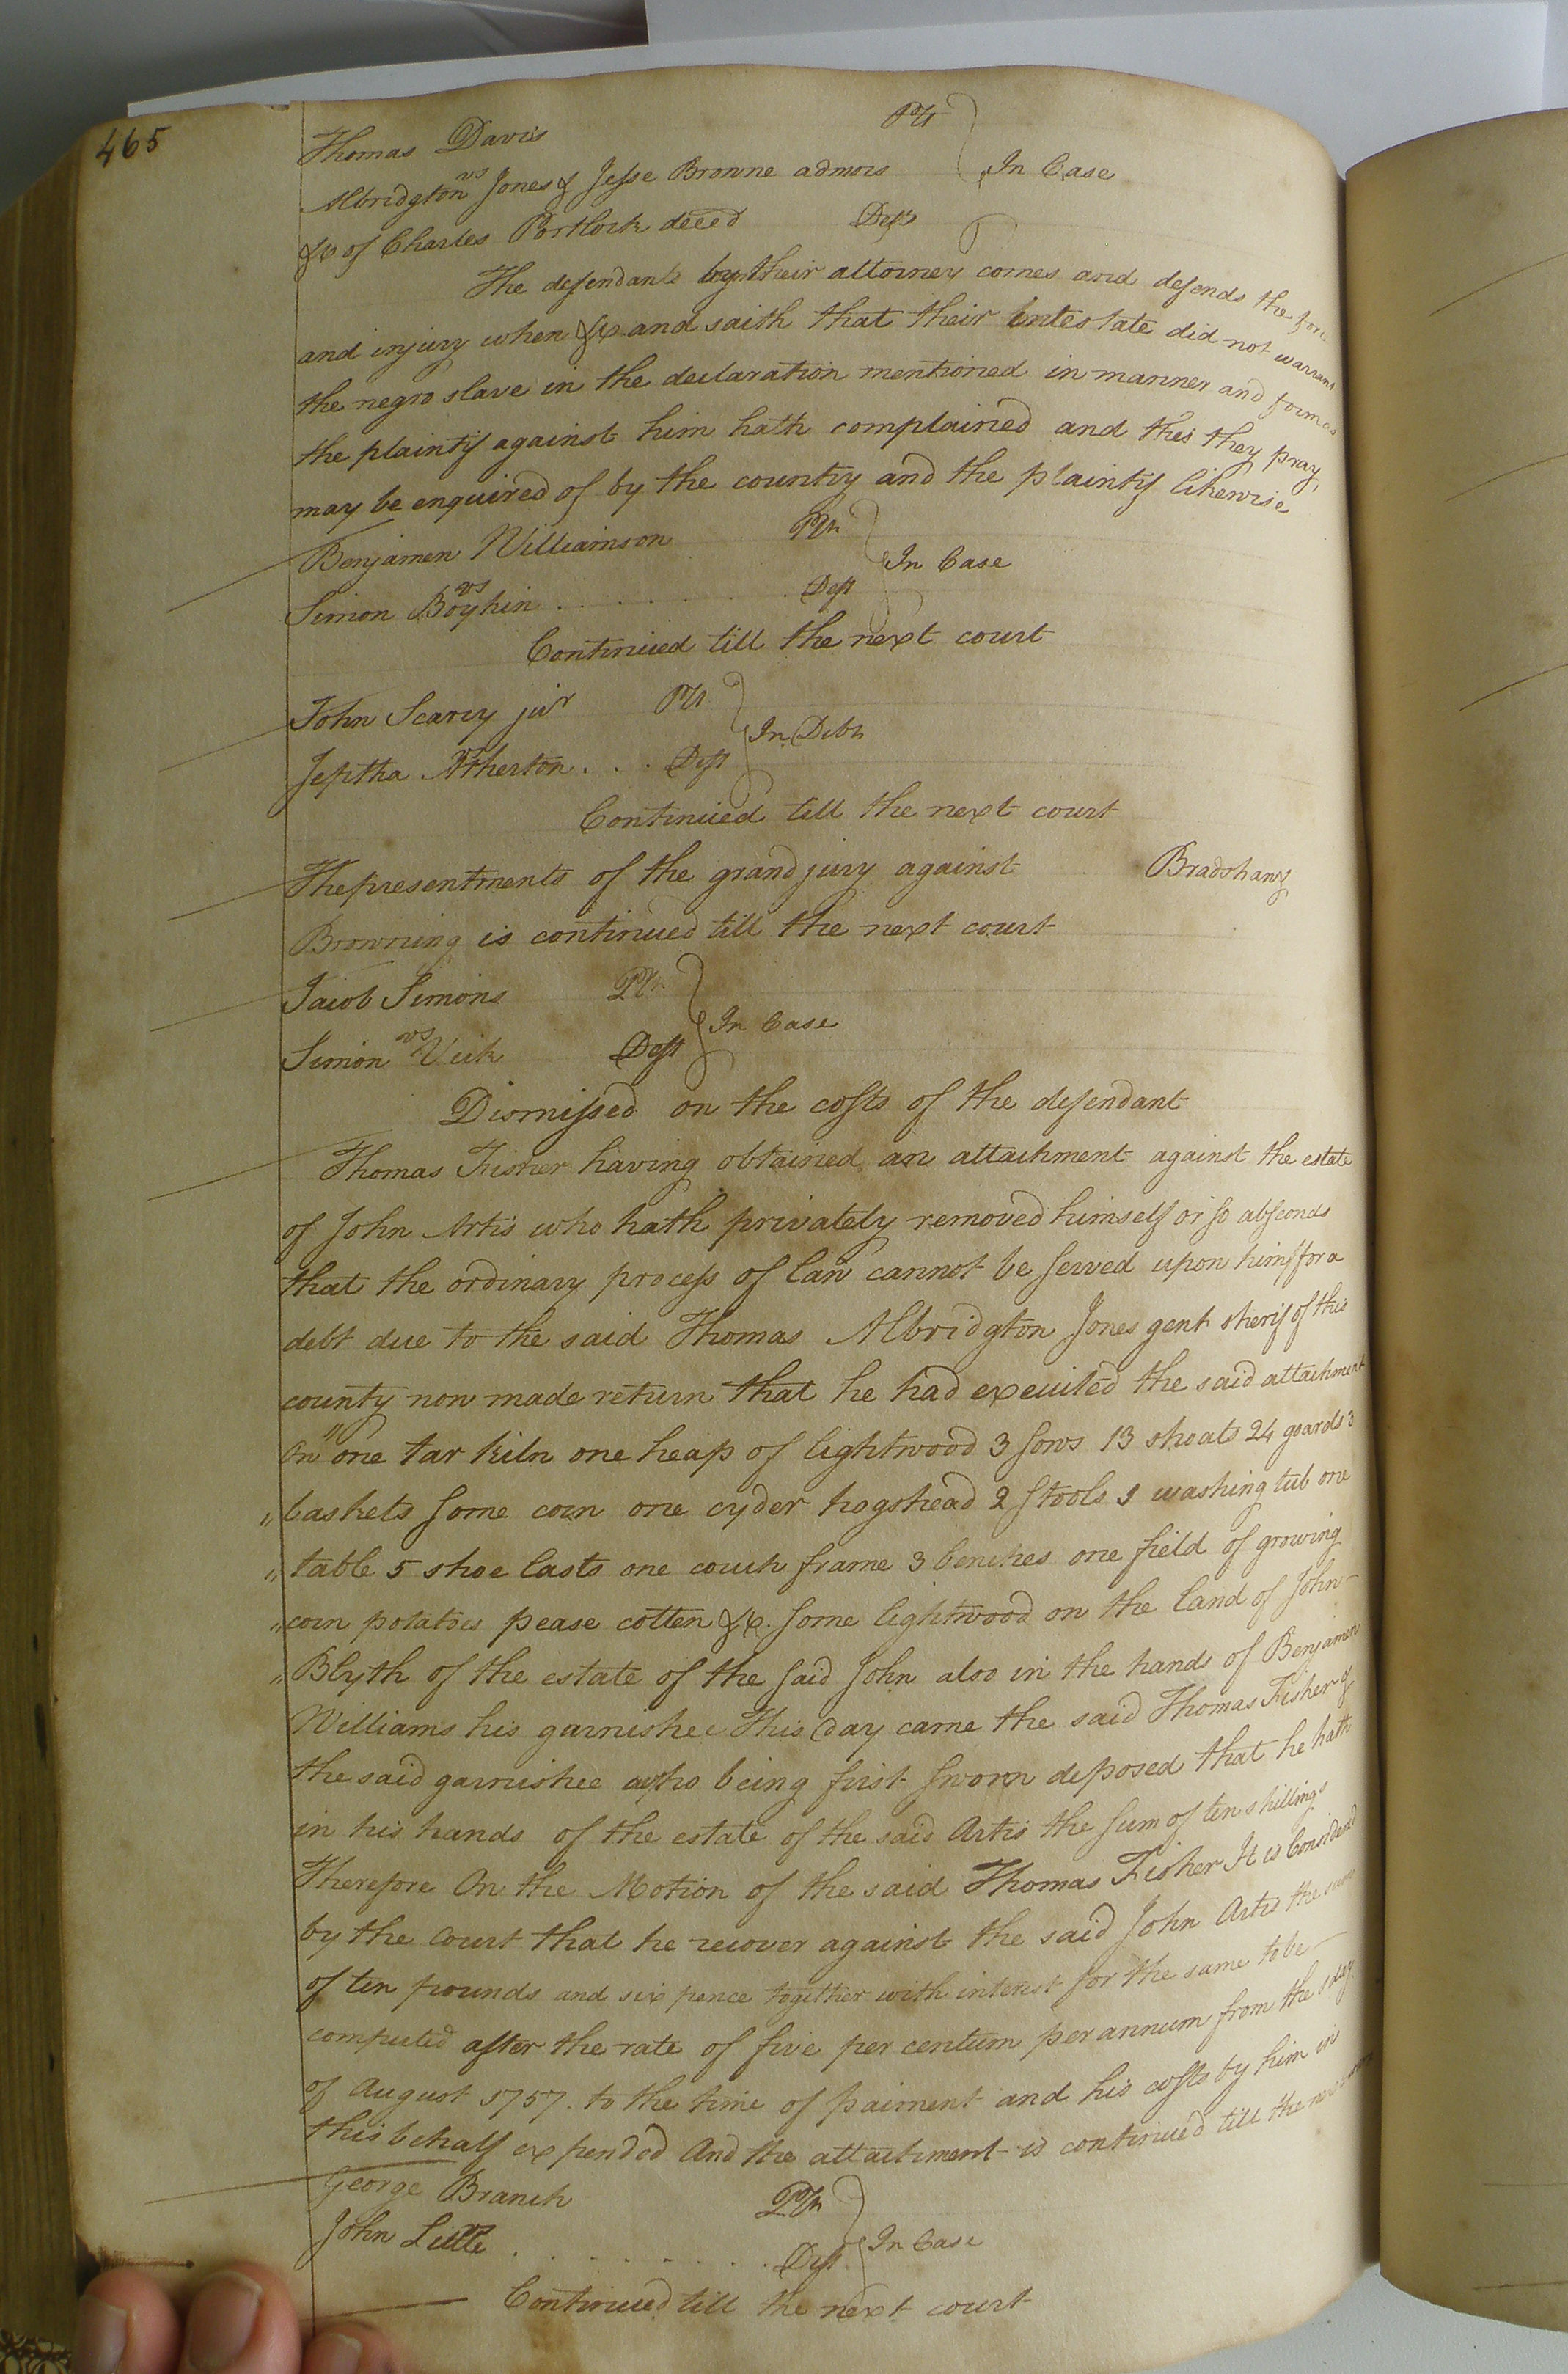 465
Thomas Davis Plt
vs
Albridgton Jones & Jesse Browne admors In Case
&c of Charles Portlock deced Defts
The defendants by their attorney comes and defends the force
and injury when &c and saith that their intestate did not warrant
the negro slave in the declaration mentioned in manner and form as
the plaintif against him hath complained and this they pray
may be enquired of by the country and the plaintif likewise
Benjamen Williamson Plt
vs In Case
Simon Boykin Deft
Continued till the next court
John Scarcy jur Plt
vs In Debt
Jeptha Atherton Deft
Continued till the next court
The presentments of the grand jury against Bradshaw
Browning is continued till the next court
Jacob Simons Plt
vs In Case
Simon Vick Deft
Dismissed on the costs of the defendant
Thomas Fisher having obtained an attachment against the estate
of John Artis who hath privately removed himself or so absconds
that the ordinary process of law cannot be served upon him for a
debt due to the said Thomas Albridgton Jones gent sherif of this
county now made return that he had executed the said attachment
On "one tar kiln one heap of lightwood 3 sows 13 shoats 24 goards 3
" baskets some corn one cyder hogshead 2 stools 1 washing tub one
" table 5 shoe lasts one couch frame 3 benches one field of growing
" corn potatoes pease cotten &c. some lightwood on the land of John
" Blyth of the estate of the said John also in the hands of Benjamen
Williams his garnishee This day came the said Thomas Fisher &
the said garnishee who being first sworn deposed that he hath
in his hands of the estate of the said Artis the sum of ten shillings
Therefore On the Motion of the said Thomas Fisher It is Considered
by the Court that he recover against the said John Artis the sum
of ten pounds and six pence together with interest for the same to be
computed after the rate of five per centum per annum from the 1 day
of August 1757. to the time of paiment and his costs by him in
this behalf expended And the attachment is continued till the next court
George Branch Plt
vs In Case
John Little Deft
Continued till the next court